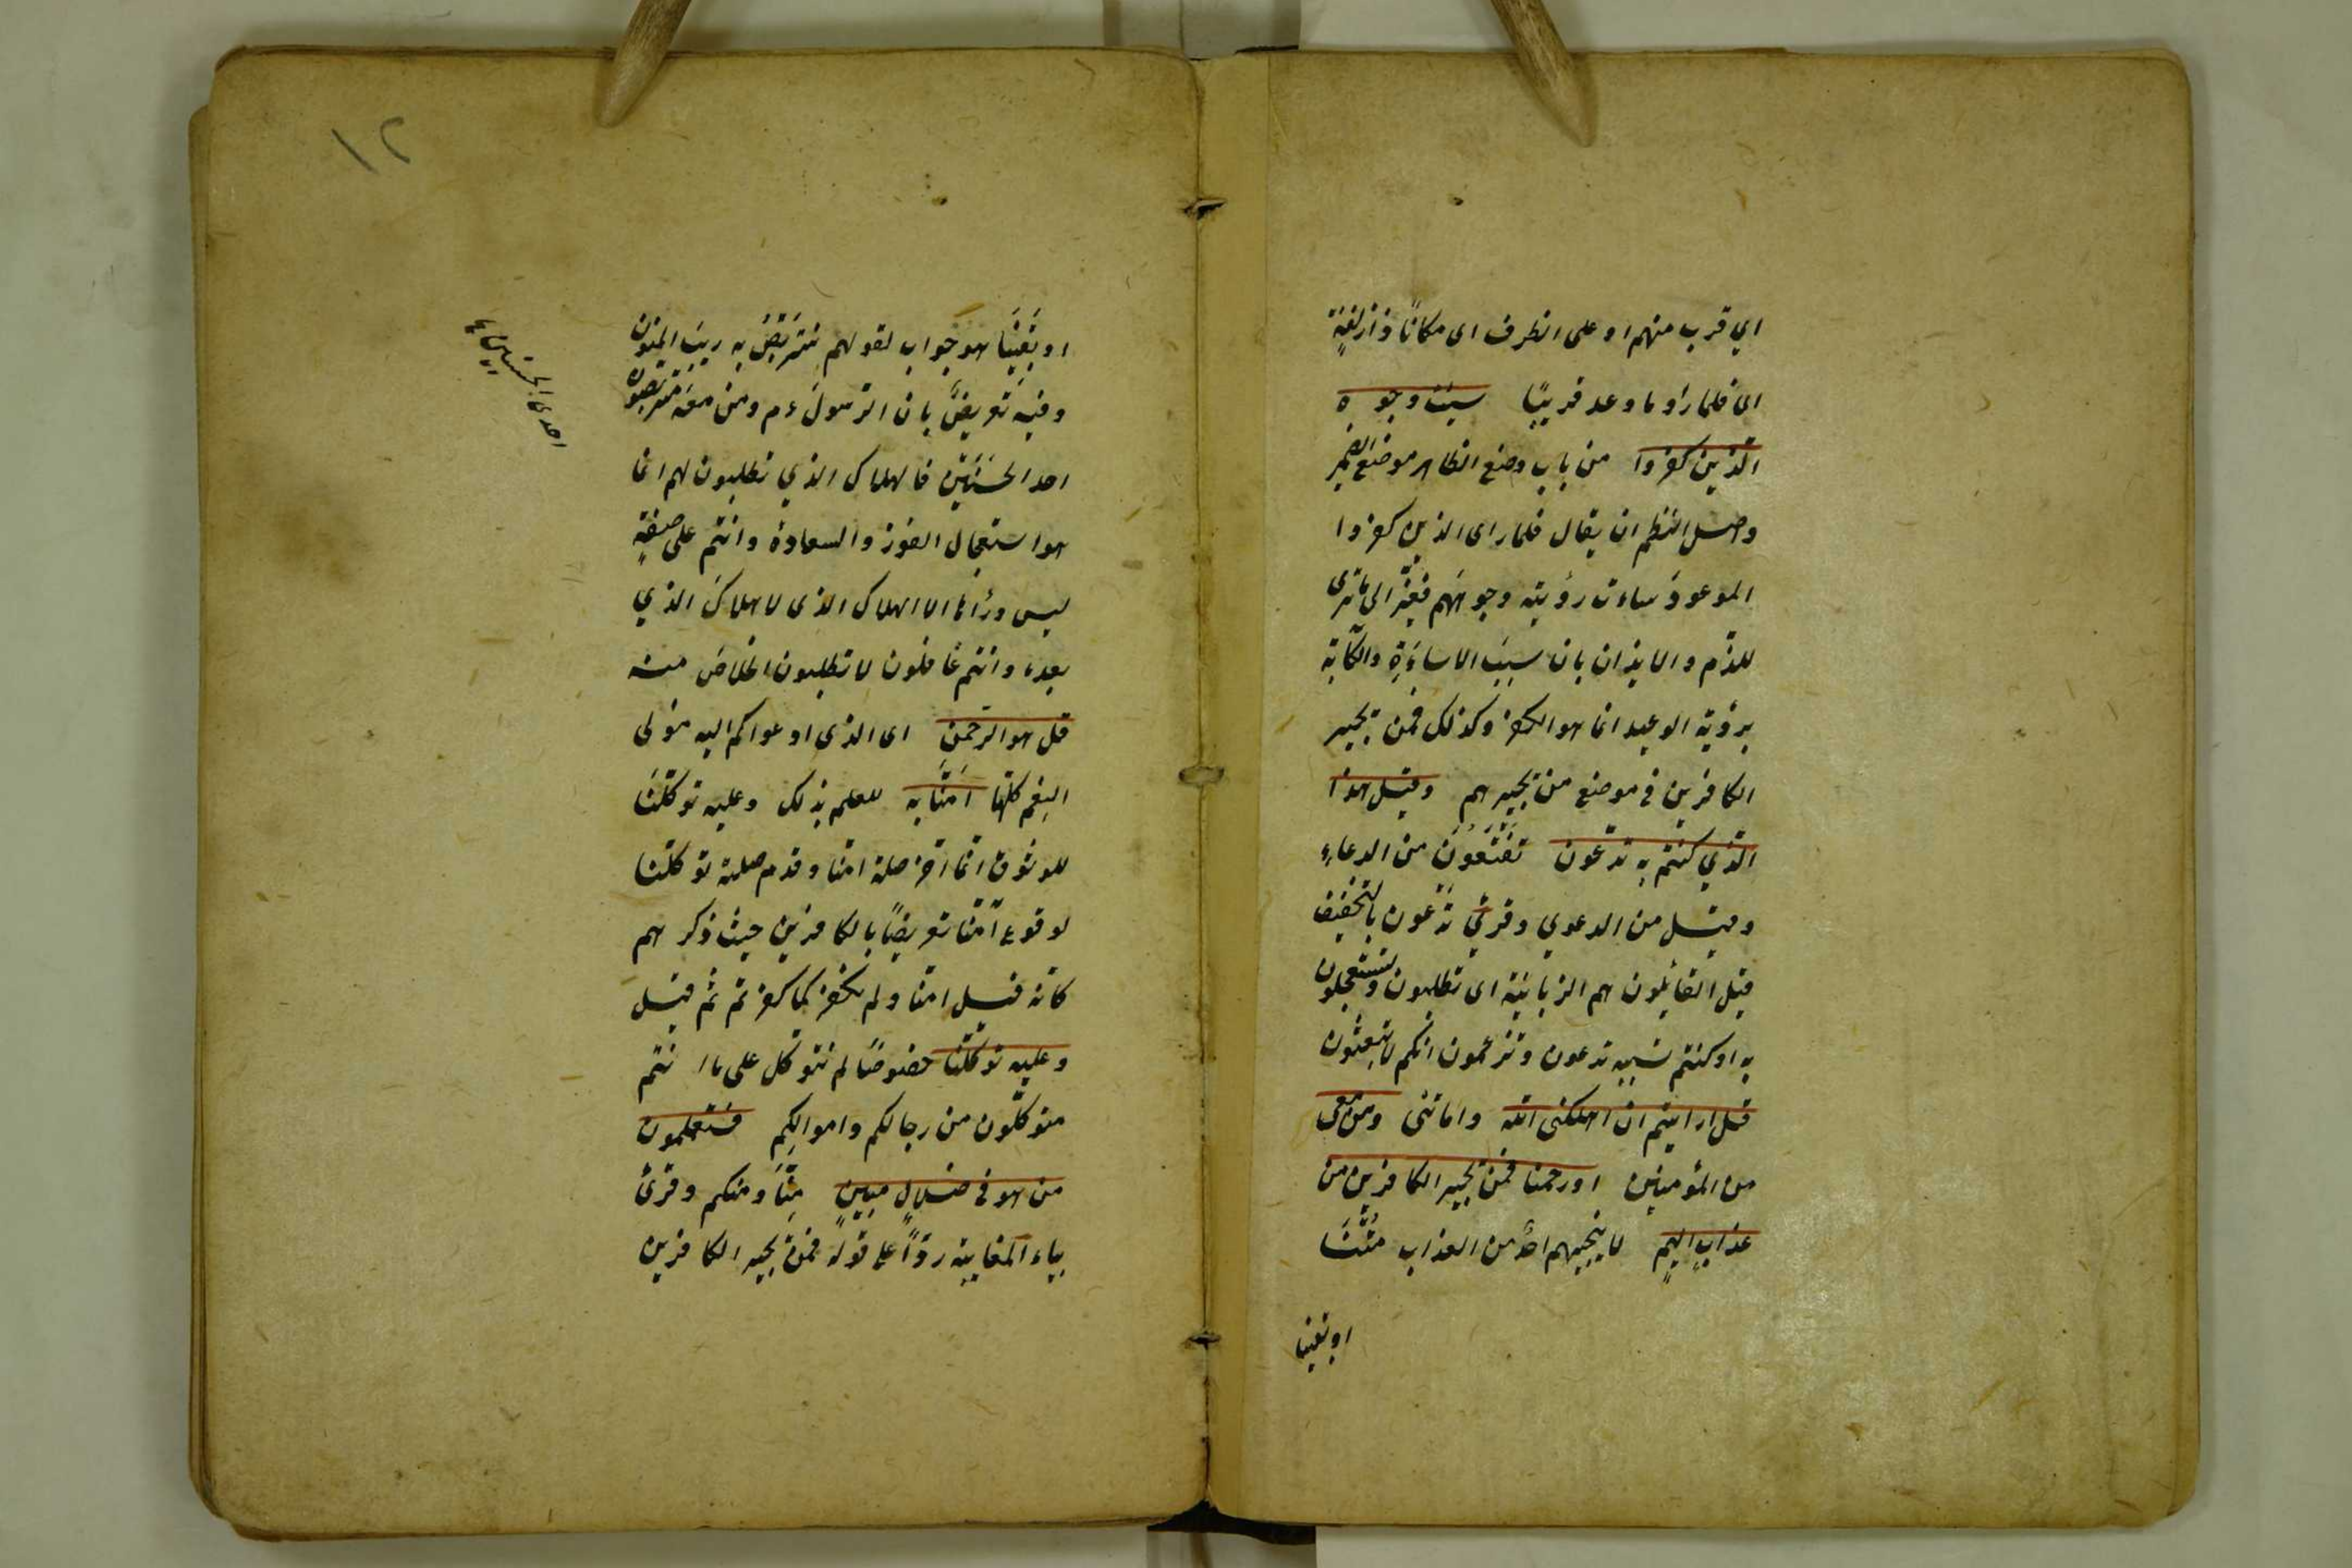 اي قرب منهم او على الظرف اى مكانًا ذا زلفةٍ
اى فلما رأو ما وعد قريبًا سيئت وجوه
الذين كفروا من باب وضع الظاهر موضع الضمير
وصل النظم ان يقال فلما راى الذين كفروا
الموعود ساءت رؤيته وجوههم فغيّر الى ما ترى
للذم والايذان بان سبب الاساءة والكآبة
برؤية الوعيد انما هو الكفر وكذلك فمن يجير
الكافرين فى موضع من يجيرهم وقيل هذا
الذي كنتم به تدعون تفتعلون من الدعاءِ
وقيل من الدعوي وقرئ تدعون بالتخفيف
قيل القائلون هم الزبانية اى تطلبون وتستعجلون
به او كنتم بسببه تدعون وتزعمون انكم لا تبعثون
قل ارايتم ان اهلكنى الله واماتنى ومن معى
من المؤمنين او رحمنا فمن يجير الكافرين من
عذابٍ اليمٍ لا ينجيهم احدٌ من العذاب متنا
او بقينا
١٢
او بقينا هو جواب لقولهم نتربّص به ريب المنون
وفيه تعريضٌ بان الرسول ءم ومن معه متربصون
احد الحسنيين فالهلاك الذي تطلبون لهم انما
هو استعجال الفوز والسعادة وانتم على صفةٍ
ليس ورأئها الا الهلاك الذى لا هلاك الذي
بعده وانتم غافلون لا تطلبون الخلاص منه
قل هو الرحمن اى الذى ادعواكم اليه مولى
النِعم كلها امنا به للعلم بذلك وعليه توكلنا
للوثوق انما اخر صلة امنا وقدم صلة توكلنا
لوقوع آمنا تعريضًا بالكافرين حيث ذكر هم
كانه قيل امنا ولم نكفر كما كفرتم ثم قيل
وعليه توكلنا خصوصًا لم نتوكل على ما انتم
متوكّلون من رجالكم واموالكم فستعلمون
من هو فى ضلالٍ مبينٍ مِنّا ومنكم وقرئ
بياء المغايبة ردًّا على قوله فمن يجير الكافرين
احدى الحسنيين